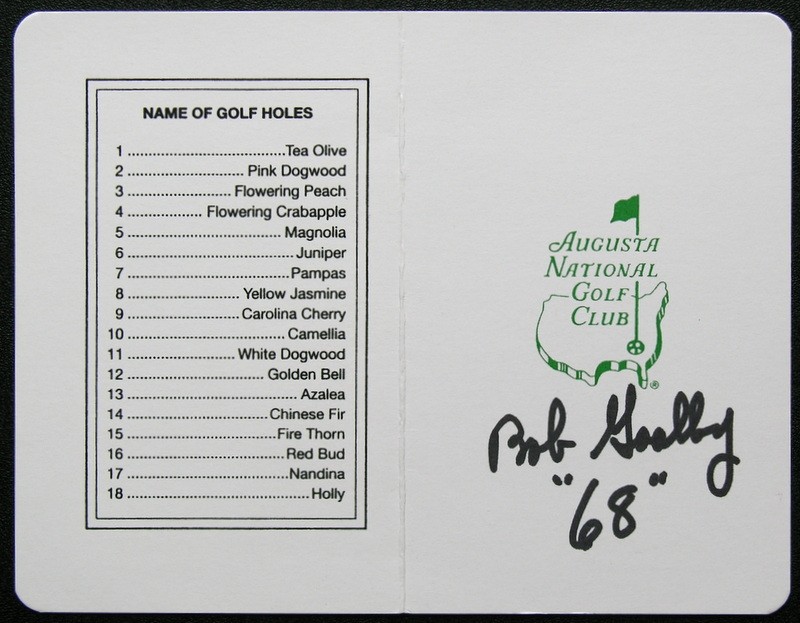 NAME OF GOLF HOLES
1 ........................................Tea Olive
2 .............................. Pink Dogwood
3 .............................Flowering Peach
4 ................... Flowering Crabapple
5 .......................................Magnolia
6 ..........................................Juniper
7 .........................................Pampas
8 ............................ Yellow Jasmine
9 .............................Carolina Cherry
10 ........................................Camellia
11 ...........................White Dogwood
12 ................................... Golden Bell
13 ........................................... Azalea
14 ....................................Chinese Fir
15 ......................................Fire Thorn
16 ........................................ Red Bud
17 .........................................Nandina
18 ..............................................Holly
AUGUSTA
NATIONAL
GOLF
CLUB
®
Bob Goalby
"68"